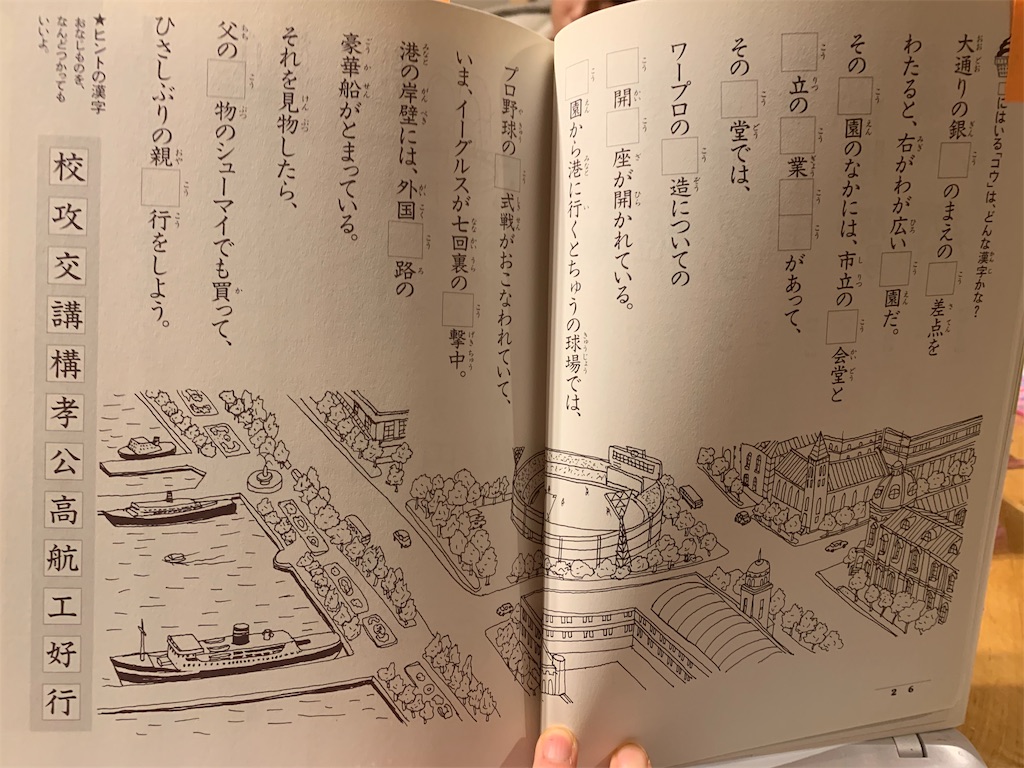 □にはいる「コウ」は、どんな漢字かな？
大通りの銀□のまえの□差点を
わたると、右がわが広い□園だ。
その□園のなかには、市立の□会堂と
□立の□業□□があって、
その□堂では、
ワープロの□造についての
□開□座が開かれている。
□園から港に行くとちゅうの球場では、
プロ野球の□式戦がおこなわれていて、
いま、イーグルスが七回裏の□撃中。
港の岸壁には、外国□路の
豪華船がとまっている。
それを見物したら、
父の□物のシューマイでも買って、
ひさしぶりの親□行をしよう。
★ヒントの漢字
おなじものを、
なんどつかっても
いいよ。
校
攻
交
講
構
孝
公
高
航
工
好
行
26